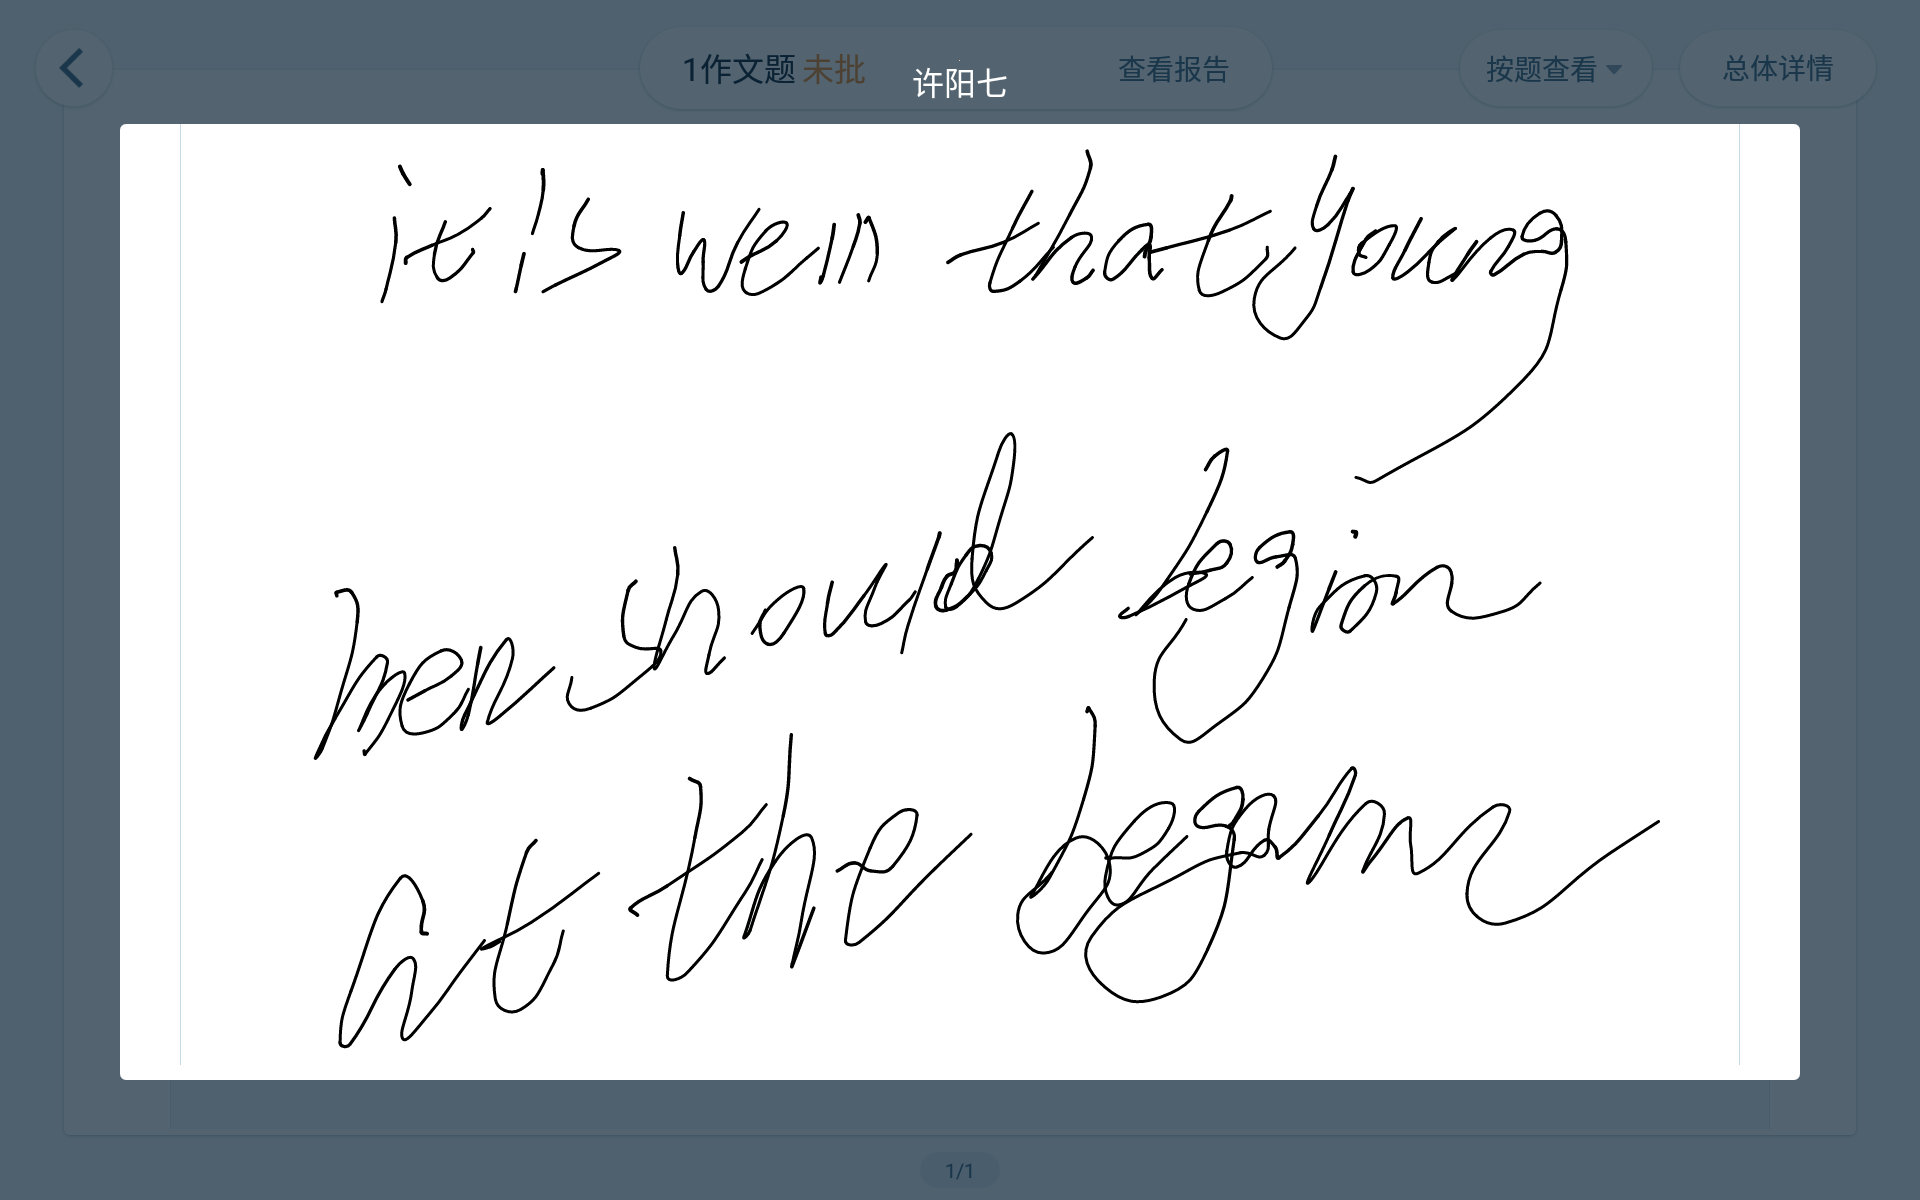 1作文题 未批 许阳七 查看报告 按题查看 总体详情
it is wein that young
men should begin
at the began
1/1